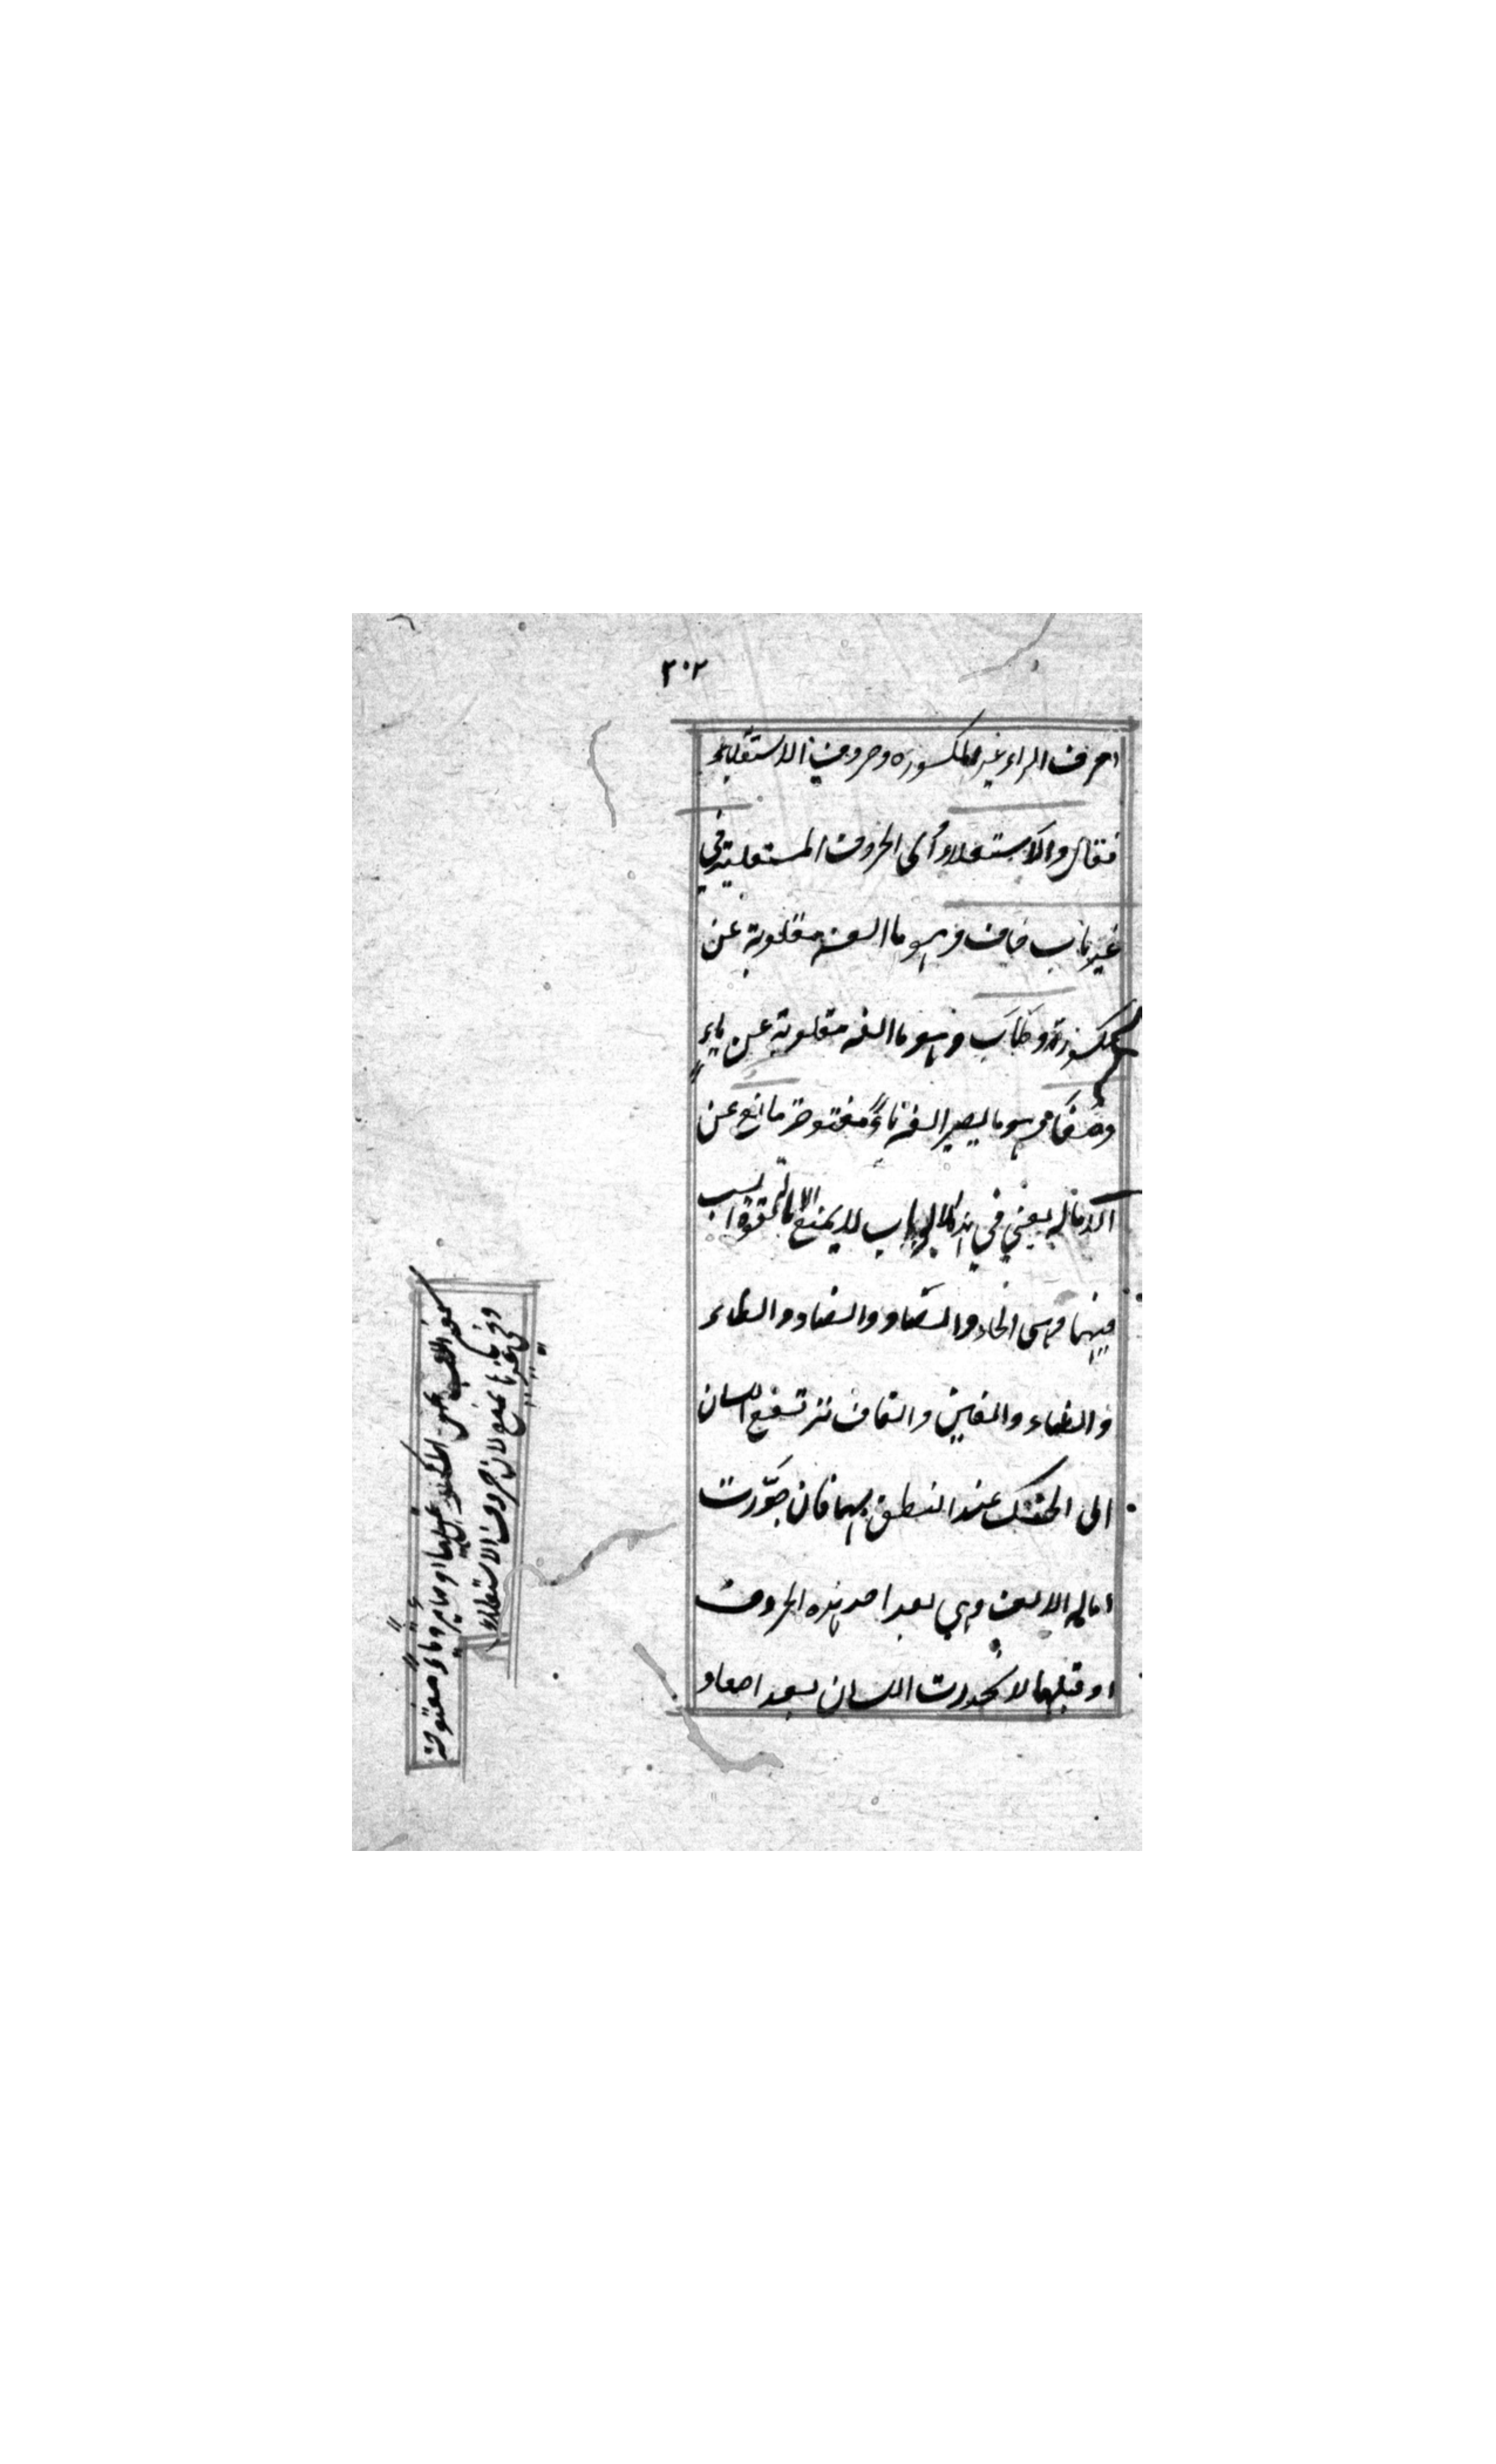 ٢٠٢
احرف الراء غير المكسوره وحروف الاستعلاء
فقال والاستعلاء أى الحروف المستعلية في
غير باب خاف وهو ما الفه مقلوبة عن
مكسورة وطاب وهو ما الفه مقلوبة عن ياء
وصغا وهو ما يصير الفه ياءً مفتوحة مانع عن
الامالة يعني في هذا الباب لا يمنع الامالة لقوة السبب
فيها وهى الخاء والصاد والضاد والطاء
والظاء والغين والقاف ترتفع اللسان
الى الحنك عند النطق بها فان جوزت
امالة الالف وهي بعد احد هذه الحروف
او قبلها لانحدرت اللسان بعد اصعاد
وفي غيرها يمنع لان حروف الاستعلاء
او ياء مفتوحة